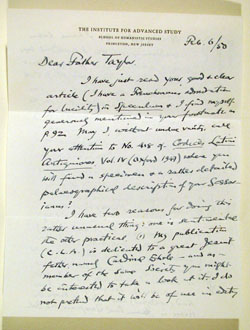 THE INSTITUTE FOR ADVANCED STUDY
SCHOOL OF HUMANISTIC STUDIES
PRINCETON, NEW JERSEY
Feb. 6/50
Dear Father Taylor
I have just read your good & clear
article (I have a admiration
for lucidity) in Speculum & I find myself
generously mentioned in your footnote on
p 92. May I without undue vanity, call
your attention to No. of Codices Latini
Antiquiores Vol IV (Oxford 1947) where you
will find a specimen & a rather detailed
palaeographical description of your
I have two reasons for doing this
rather unusual thing: one is sentimental
the other practical. (1) My publication
(C.L.A.) is dedicated to a great Jesuit
father, named Cardinal Ehrle - and as
member of the same Society you might
be interested to take a look at it. I do
not pretend that it will be of use in